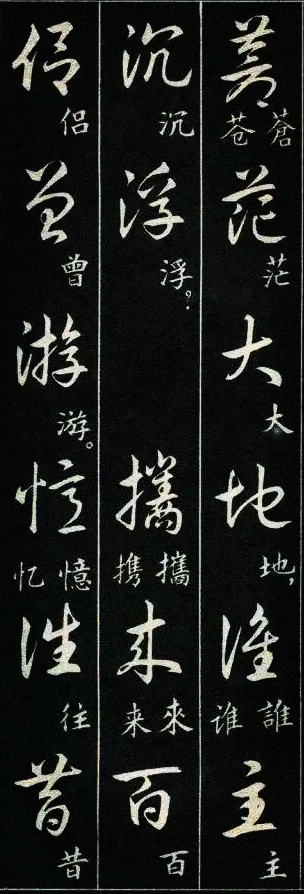 蒼茫大地誰主
蒼苍茫大地，誰谁主
沉浮攜来百
沉浮？攜携來来百
侶曾游憶往昔
侶曾游。憶忆往昔